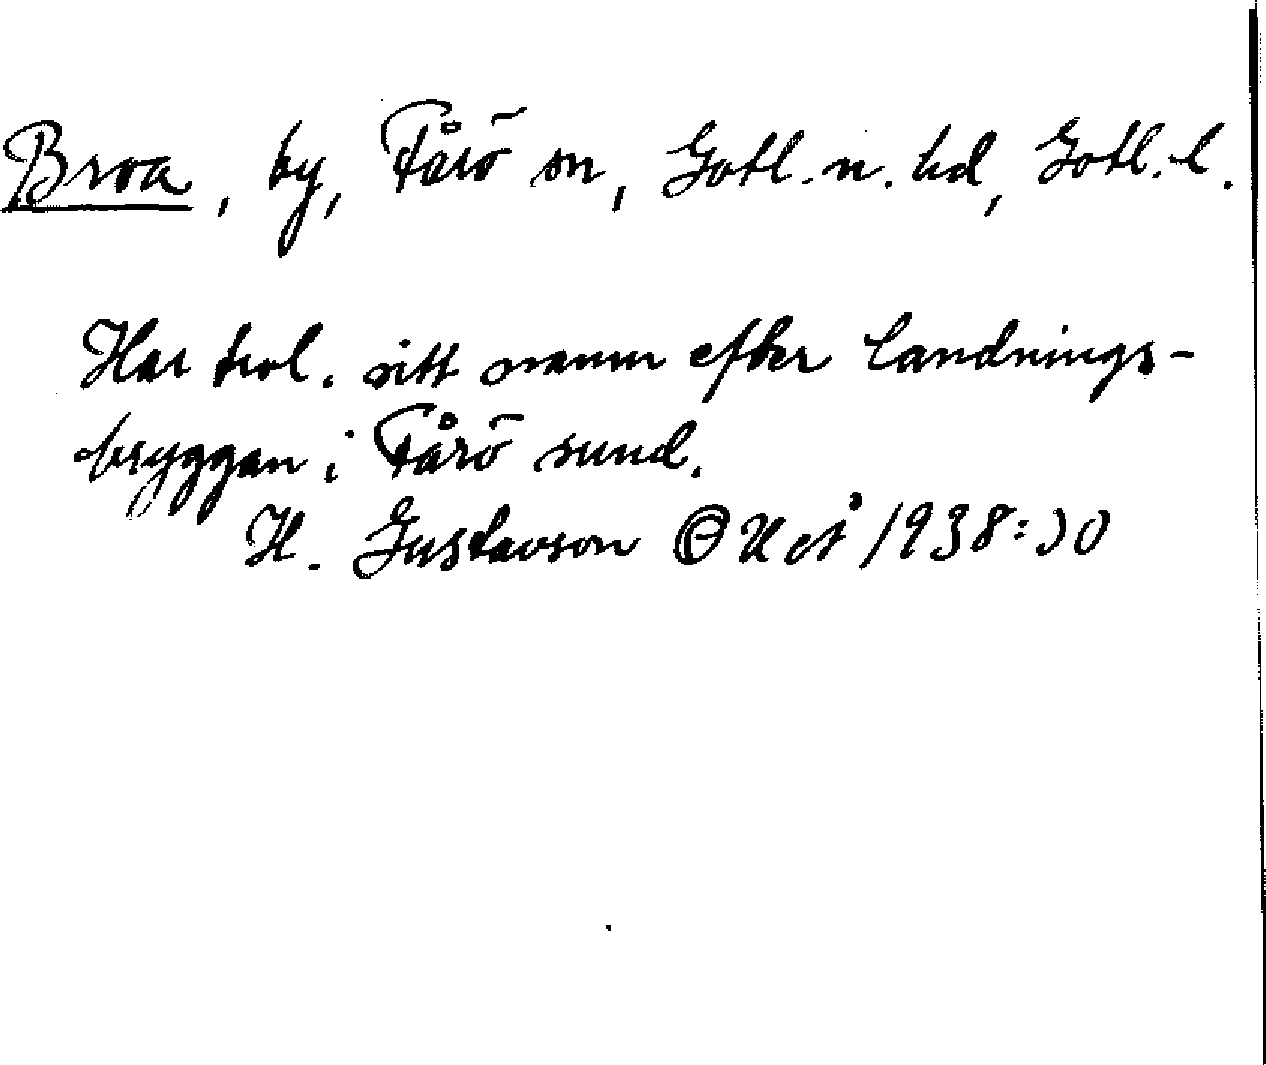 Broa, by, Fårö sn, Gotl. n. hd, Gotl. l.
Har trol. sitt namn efter landnings-
bryggan i Fårö sund.
H. Gustavson UUÅ 1938: